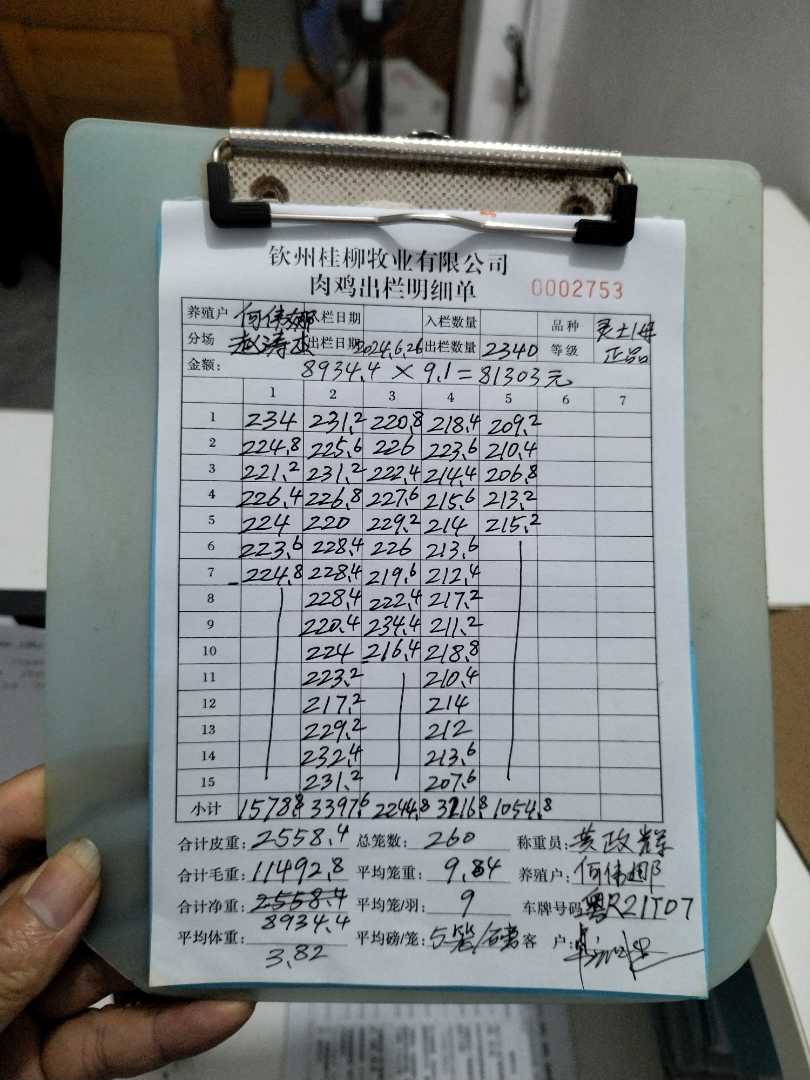 钦州桂柳牧业有限公司
肉鸡出栏明细单 0002753
养殖户 何伟娜 入栏日期 入栏数量 品种 灵土1母
分场 赵涛杰 出栏日期 2024.6.26 出栏数量 2340 等级 正品
金额: 8934.4 × 9.1 = 81303元
1 2 3 4 5 6 7
1 234 231.2 220.8 218.4 209.2
2 224.8 225.6 226 223.6 210.4
3 221.2 231.2 222.4 214.4 206.8
4 226.4 226.8 227.6 215.6 213.2
5 224 220 229.2 214 215.2
6 223.6 228.4 226 213.6
7 224.8 228.4 219.6 212.4
8 228.4 222.4 217.2
9 220.4 234.4 211.2
10 224 216.4 218.8
11 223.2 210.4
12 217.2 214
13 229.2 212
14 232.4 213.6
15 231.2 207.6
小计 1578.8 3397.6 2244.8 3216.8 1054.8
合计皮重: 2558.4 总笼数: 260 称重员: 黄政辉
合计毛重: 11492.8 平均笼重: 9.84 养殖户: 何伟娜
合计净重: 2558.4 平均笼/羽: 9 车牌号码 粤R21T07
8934.4
平均体重: 3.82 平均磅/笼: 5笼/磅 客 户: